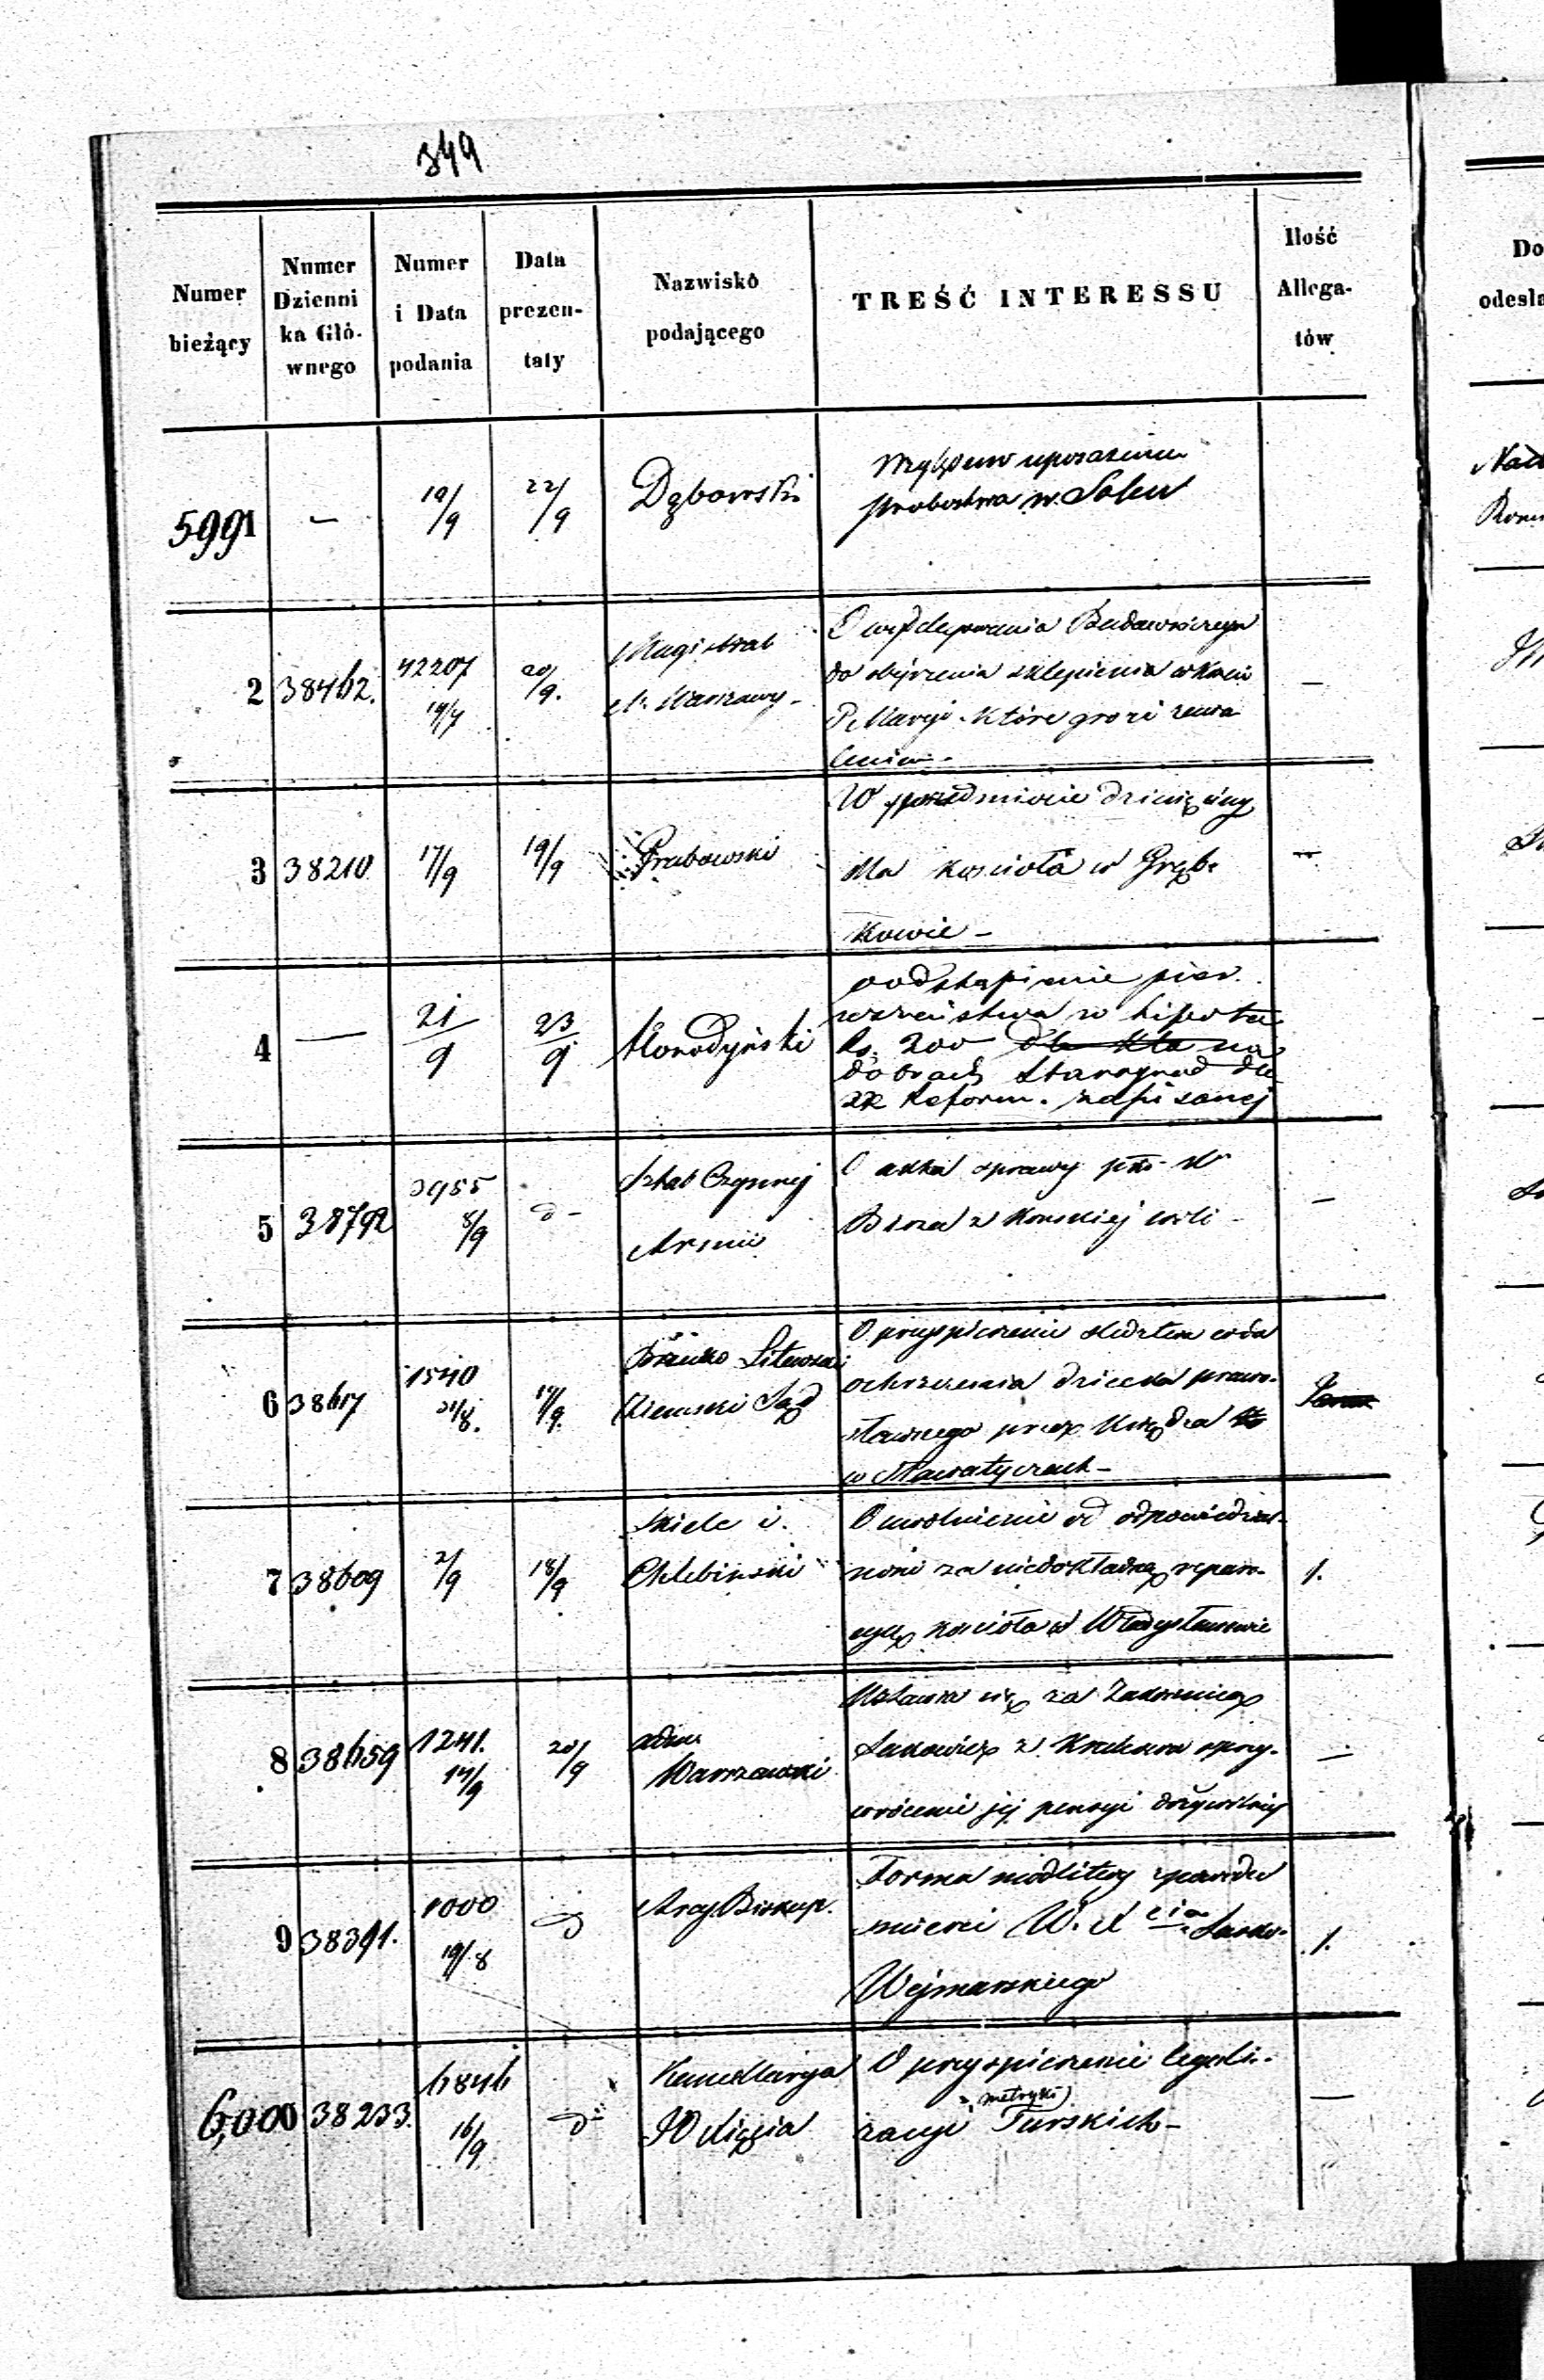 349
Numer bieżący
Numer Dzienni ka Głó- wnego
Numer i Data podania
Data prezen- taty
Nazwisko podającego
TREŚĆ INTERESSU
Ilość Allega- tów
Do
odesła
5991 — 19/9 22/9 Dąbowski
względem uposażenia
probostwa w Solcu
2 38462. 42207 19/9 20/9. Magistrat
M. Warszawy -
O wydelegowania Budowniczego
do obejrzenia sklepienia w Kości
P Maryi. które grozi zawa
leniem. —
3 38210 17/9 19/9 Grabowski
W przedmiocie dziesięciny
dla kościoła w Gręb-
kowie - —
4 — 21/9 23/9 Horodyński
o odstąpienie pier.
wszeństwa w hipotece
Rs. 200 na
dobrach Starogród dla
XX Reform. zapisanej
5 38792 3955 8/9 d - Sztab Czynnej
Armii
O akta sprawy pko X
z Końskiej woli - —
6 38617 1540 31/8. 17/9. Litewski
Ziemski Sąd
O przyspieszenie śledztwa co do
ochrzczenia dziecka prawo-
sławnego przez Księdza
w Sławatyczach -
7 38609 2/9 18/9 Skiele i.
Chlebinski
O uwolnienie od odpowiedzial-
ności za niedokładną repara-
cyę kościoła w Władysławowie 1.
8 38659 1241. 14/9 20/9 adm.
Warszawski
Wstawia się za Zakonnicą
z Krakowa o przy-
wrócenie jej pensyi dożywotniej —
9 38391. 1000 19/8 d Arcy Biskup.
Forma modlitwy z powodu
śmierci W. X cia Sasko-
Wejmarskiego 1.
6,000 38233. 6846 16/9 d Kancellarya
JO Xięcia
O przyspieszenie legali-
zacyi metryki Turskich - —